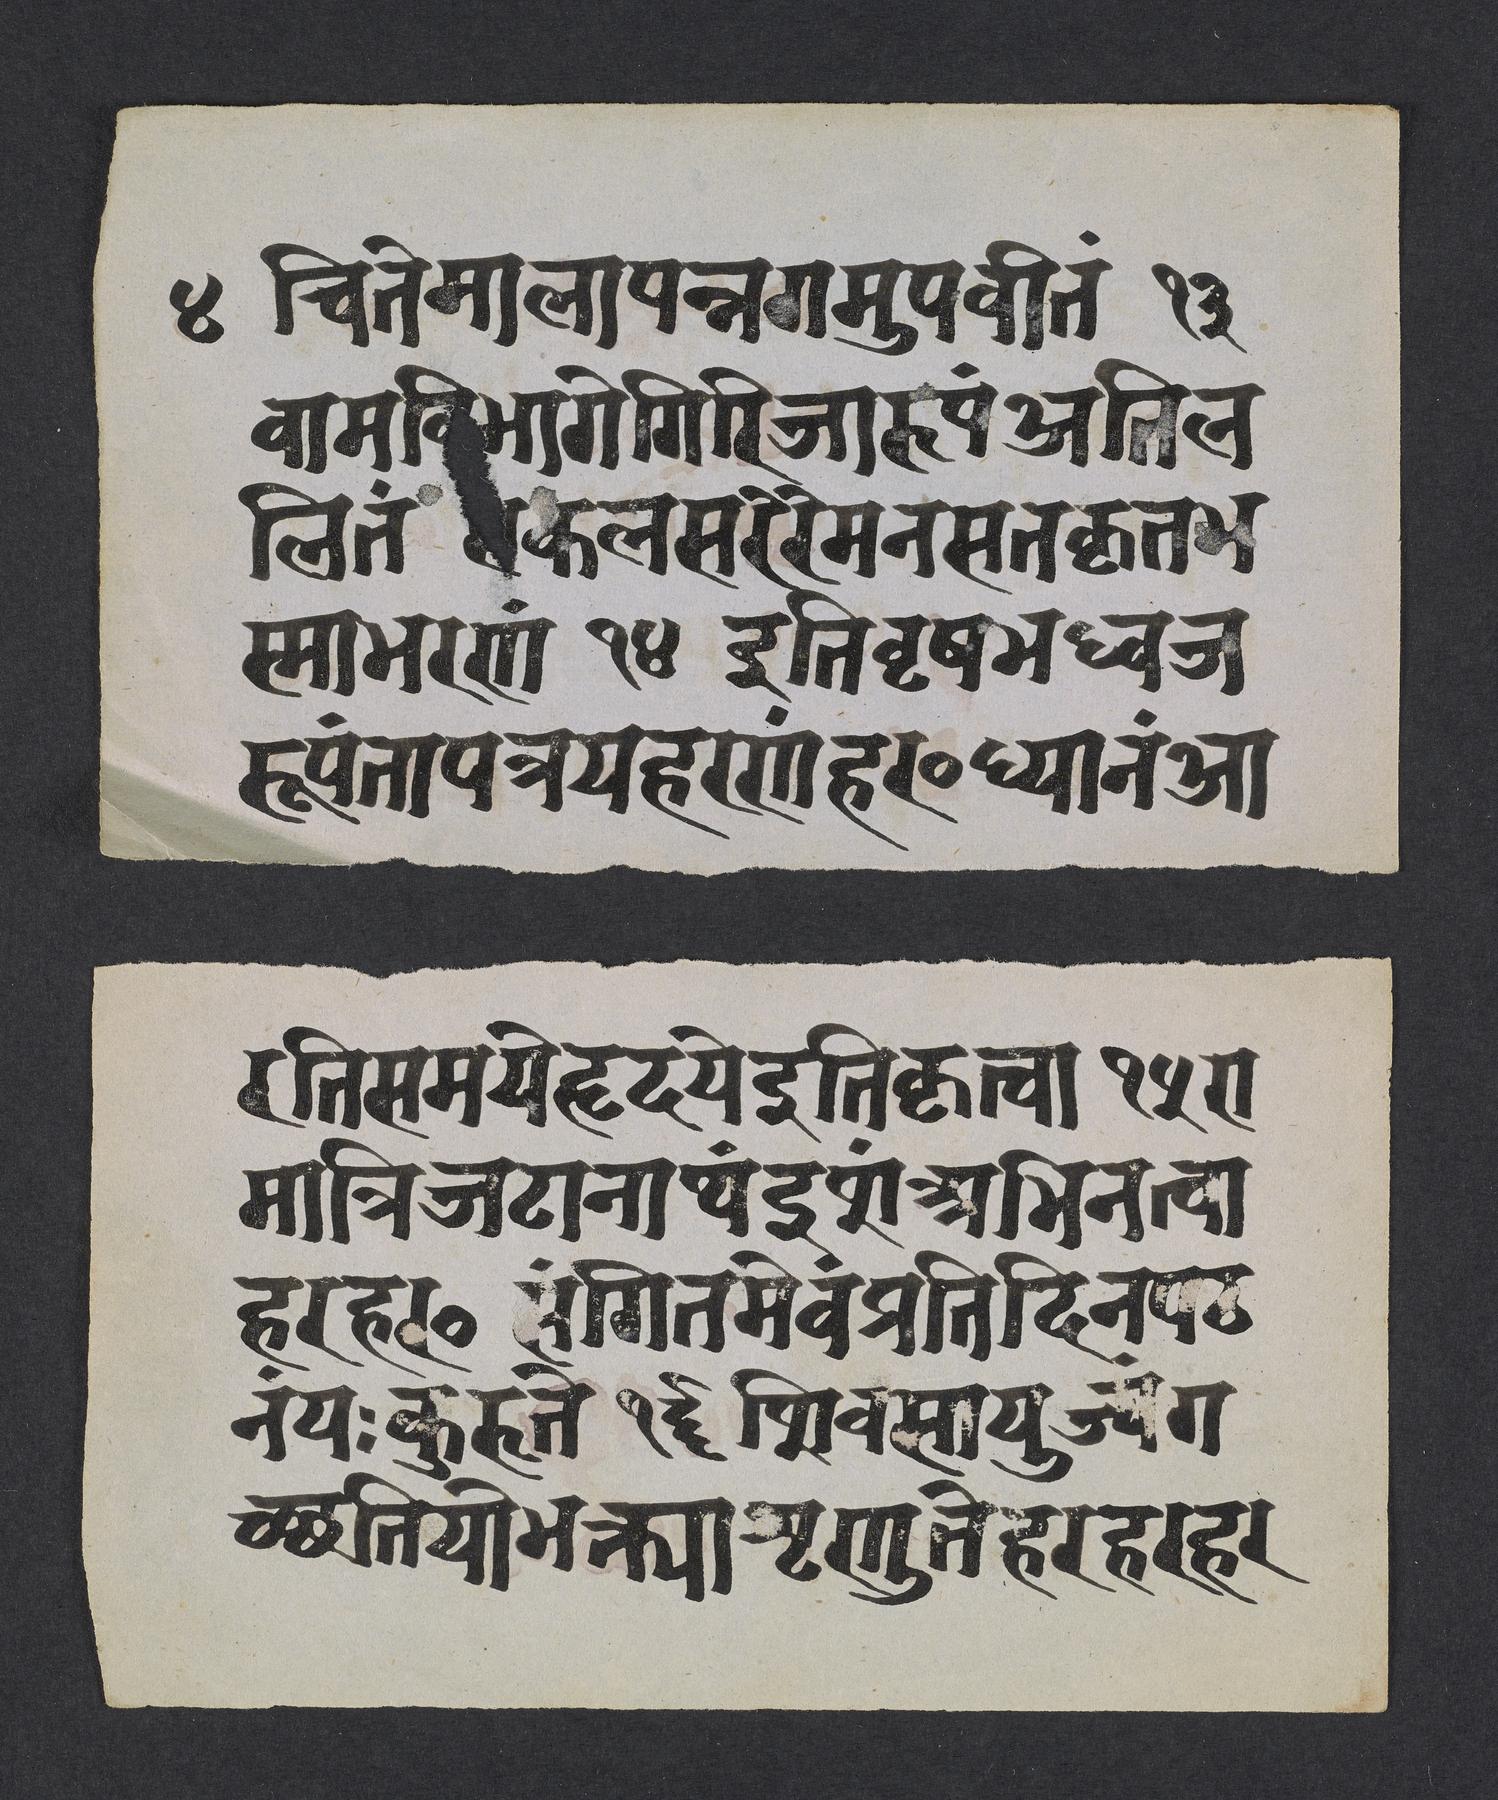 ४ चितेमालापन्नगमुपवीतं १३
वामविभागेगिरिजारूपंअतिल
लितं कलसरिरेमनसतकृतभ
स्माभरणं १४ इतिवृषभध्वज
रूपंतापत्रयहरणंहर॰ध्यानंआ
रतिसमयेहृदयेइतिकृत्वा १५ रा
मात्रिजटानाथंइशंअभिनत्वा
हरहर॰ संगितमेवंप्रतिदिनपठ
नंयःकुरूते १६ शिवसायुज्यंग
च्छतियोभक्त्याशृणुतेहरहरहर